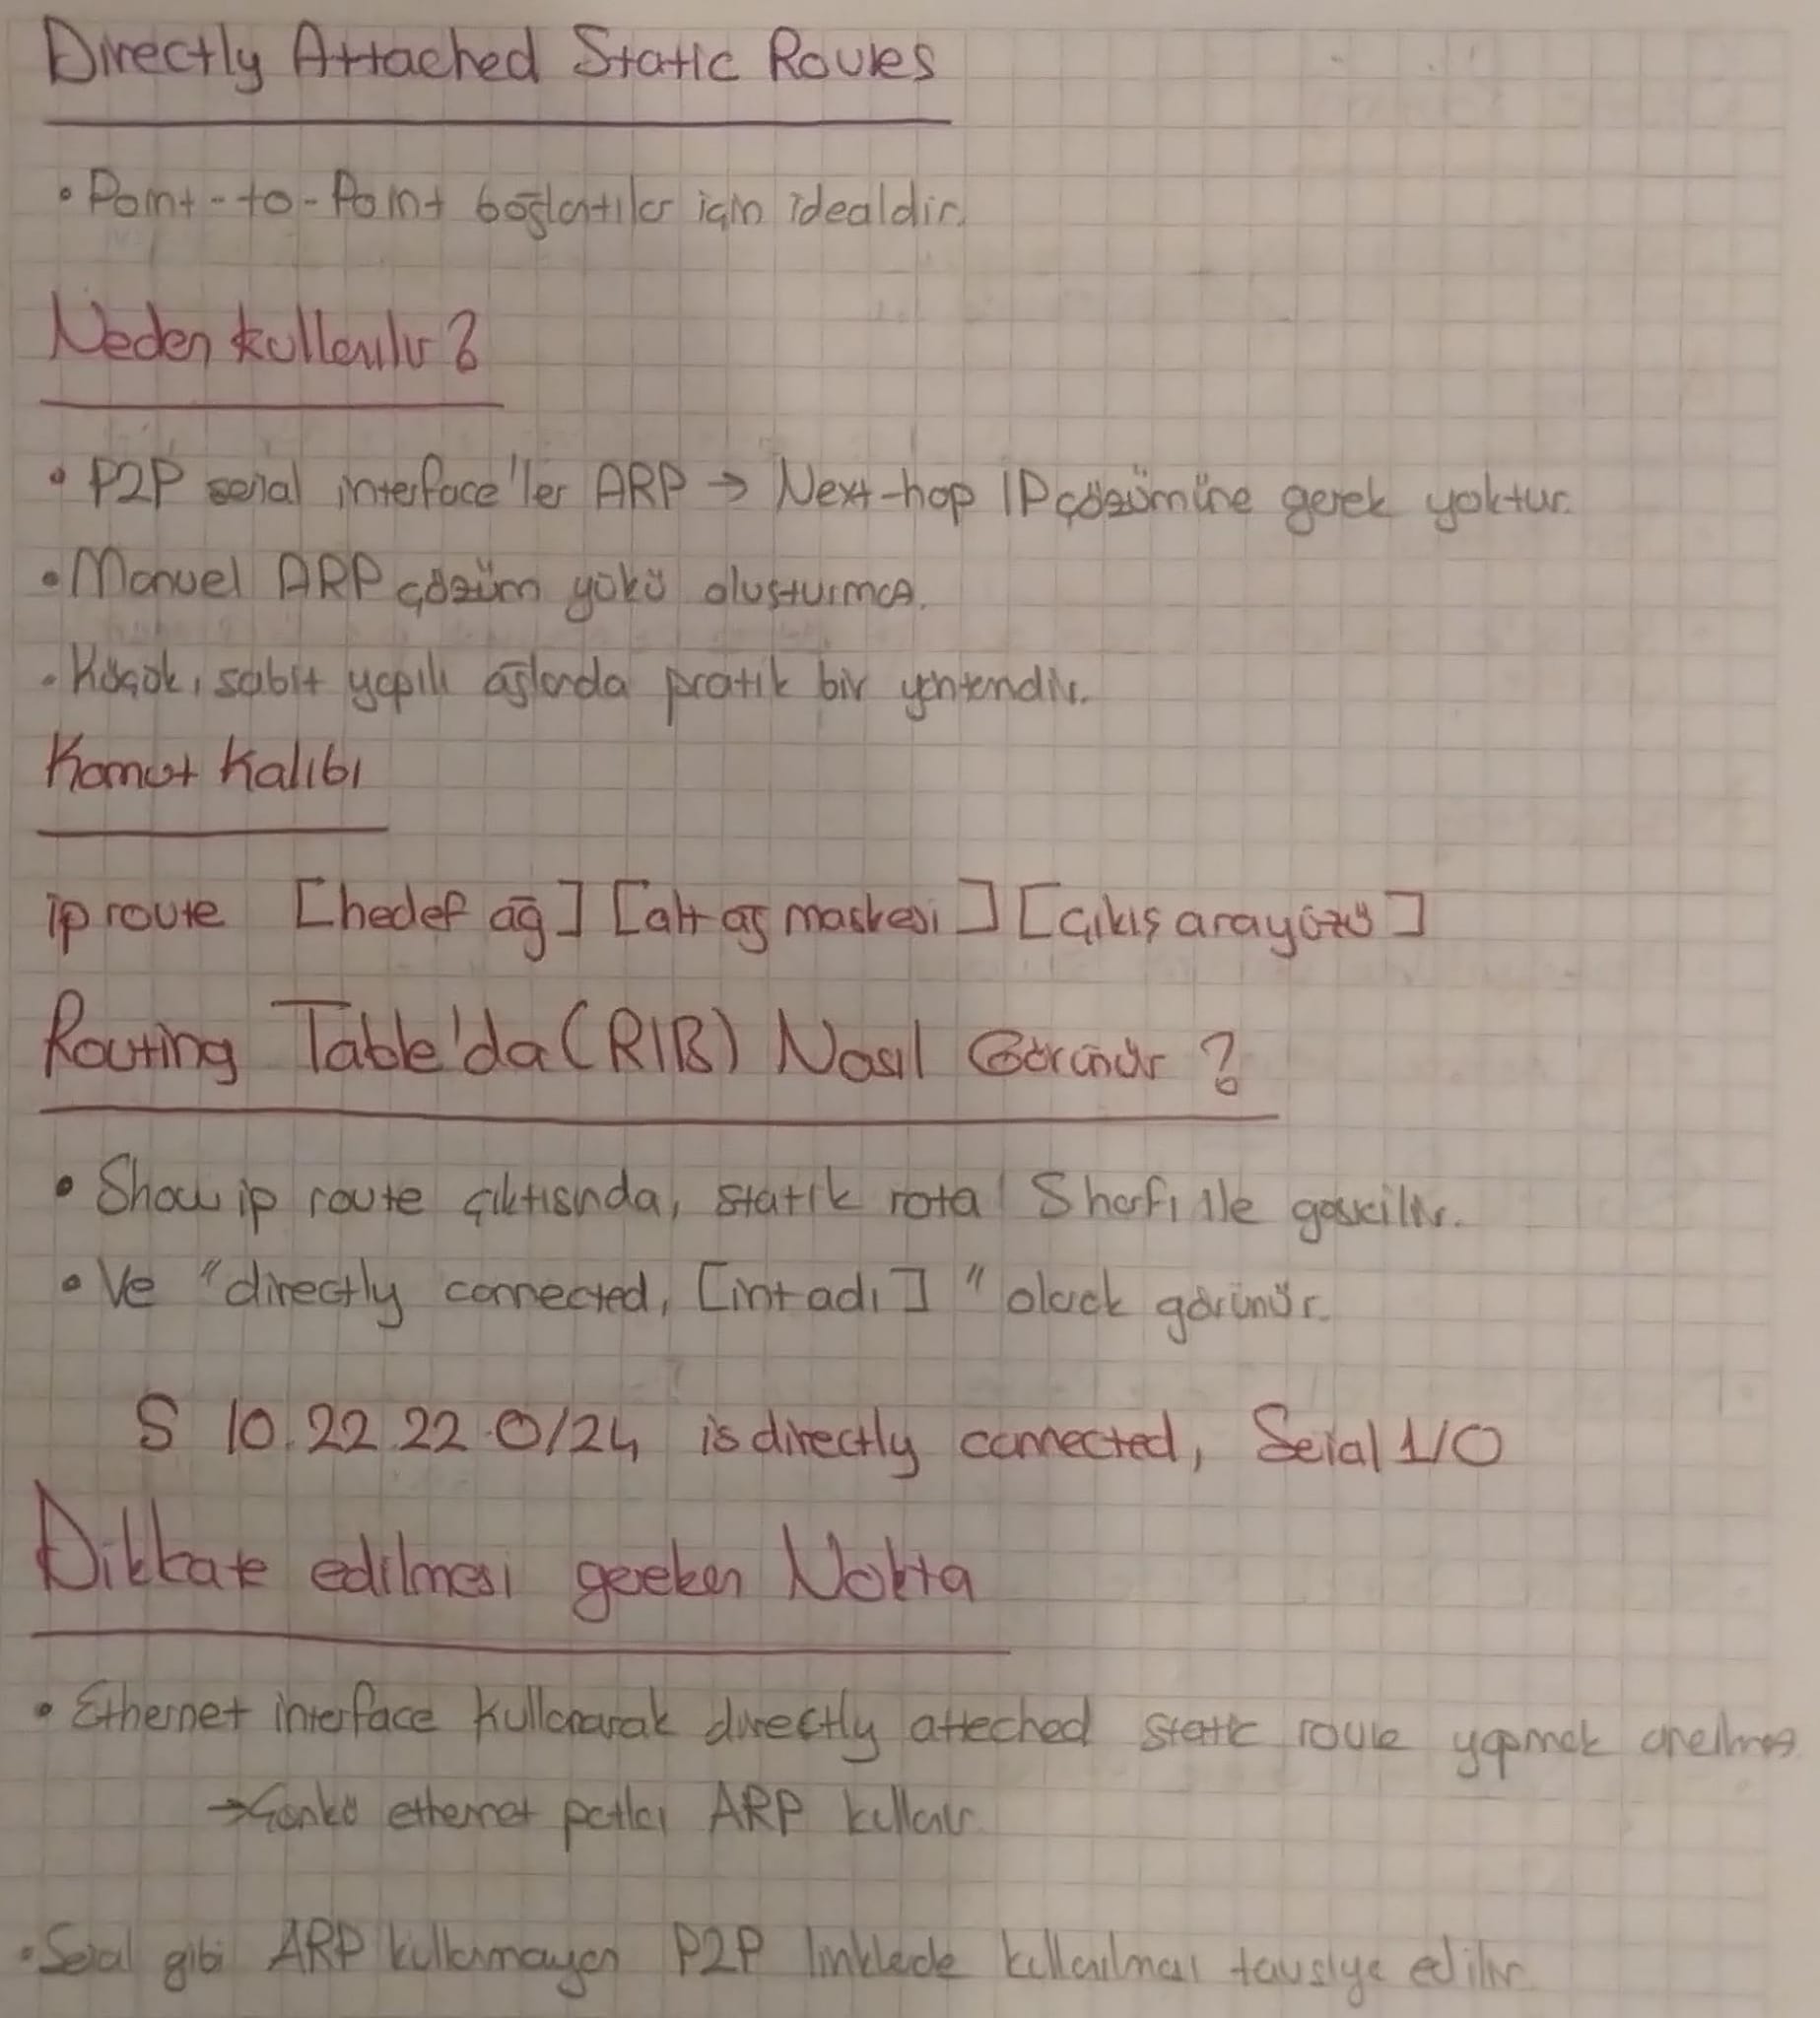 Directly Attached Static Routes
• Point-to-Point bağlantılar için idealdir.
Neden kullanılır?
• P2P serial interface'ler ARP → Next-hop IP çözümüne gerek yoktur.
• Manuel ARP çözüm yükü oluşturmaz.
• Küçük, sabit yapılı ağlarda pratik bir yöntemdir.
Komut Kalıbı
ip route [hedef ağ] [alt ağ maskesi] [çıkış arayüzü]
Routing Table'da (RIB) Nasıl Görünür?
• Show ip route çıktısında, statik rota S harfi ile gösterilir.
• Ve "directly connected, [int adı]" olarak görünür.
S 10.22.22.0/24 is directly connected, Serial 1/0
Dikkate edilmesi gereken Nokta
• Ethernet interface kullanarak directly attached static route yapmak önerilmez
→ Çünkü ethernet portları ARP kullanır.
• Serial gibi ARP kullanmayan P2P linklerde kullanılması tavsiye edilir.